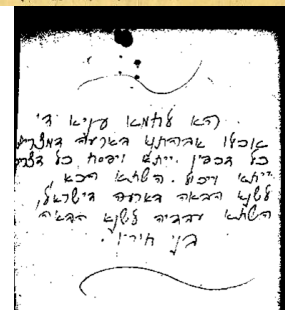 הא לחמא עניא די
אכלו אבהתנא בארעא דמצרים
כל דכפין ייתי ויכול כל דצריך
ייתי ויפסח. השתא הכא,
לשנה הבאה בארעא דישראל,
השתא עבדי לשנה הבאה
בני חורין.